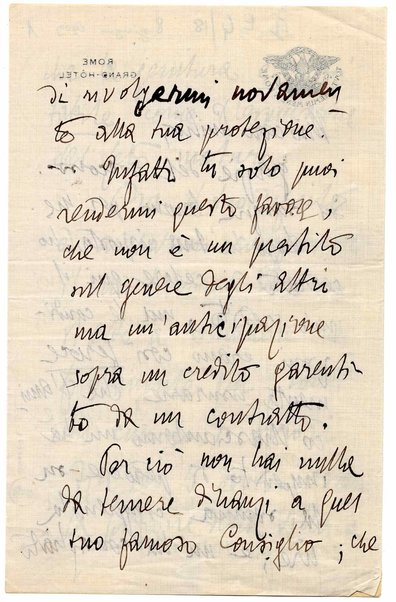 ROME
GRAND-HÔTEL
di rivolgermi novamen
te alla tua protezione.
Infatti tu solo puoi
rendermi questo favore,
che non è un prestito
sul genere degli altri
ma un'anticipazione
sopra un credito garenti
to da un contratto.
Per ciò non hai nulla
da temere dinanzi a quel
tuo famoso Consiglio; che